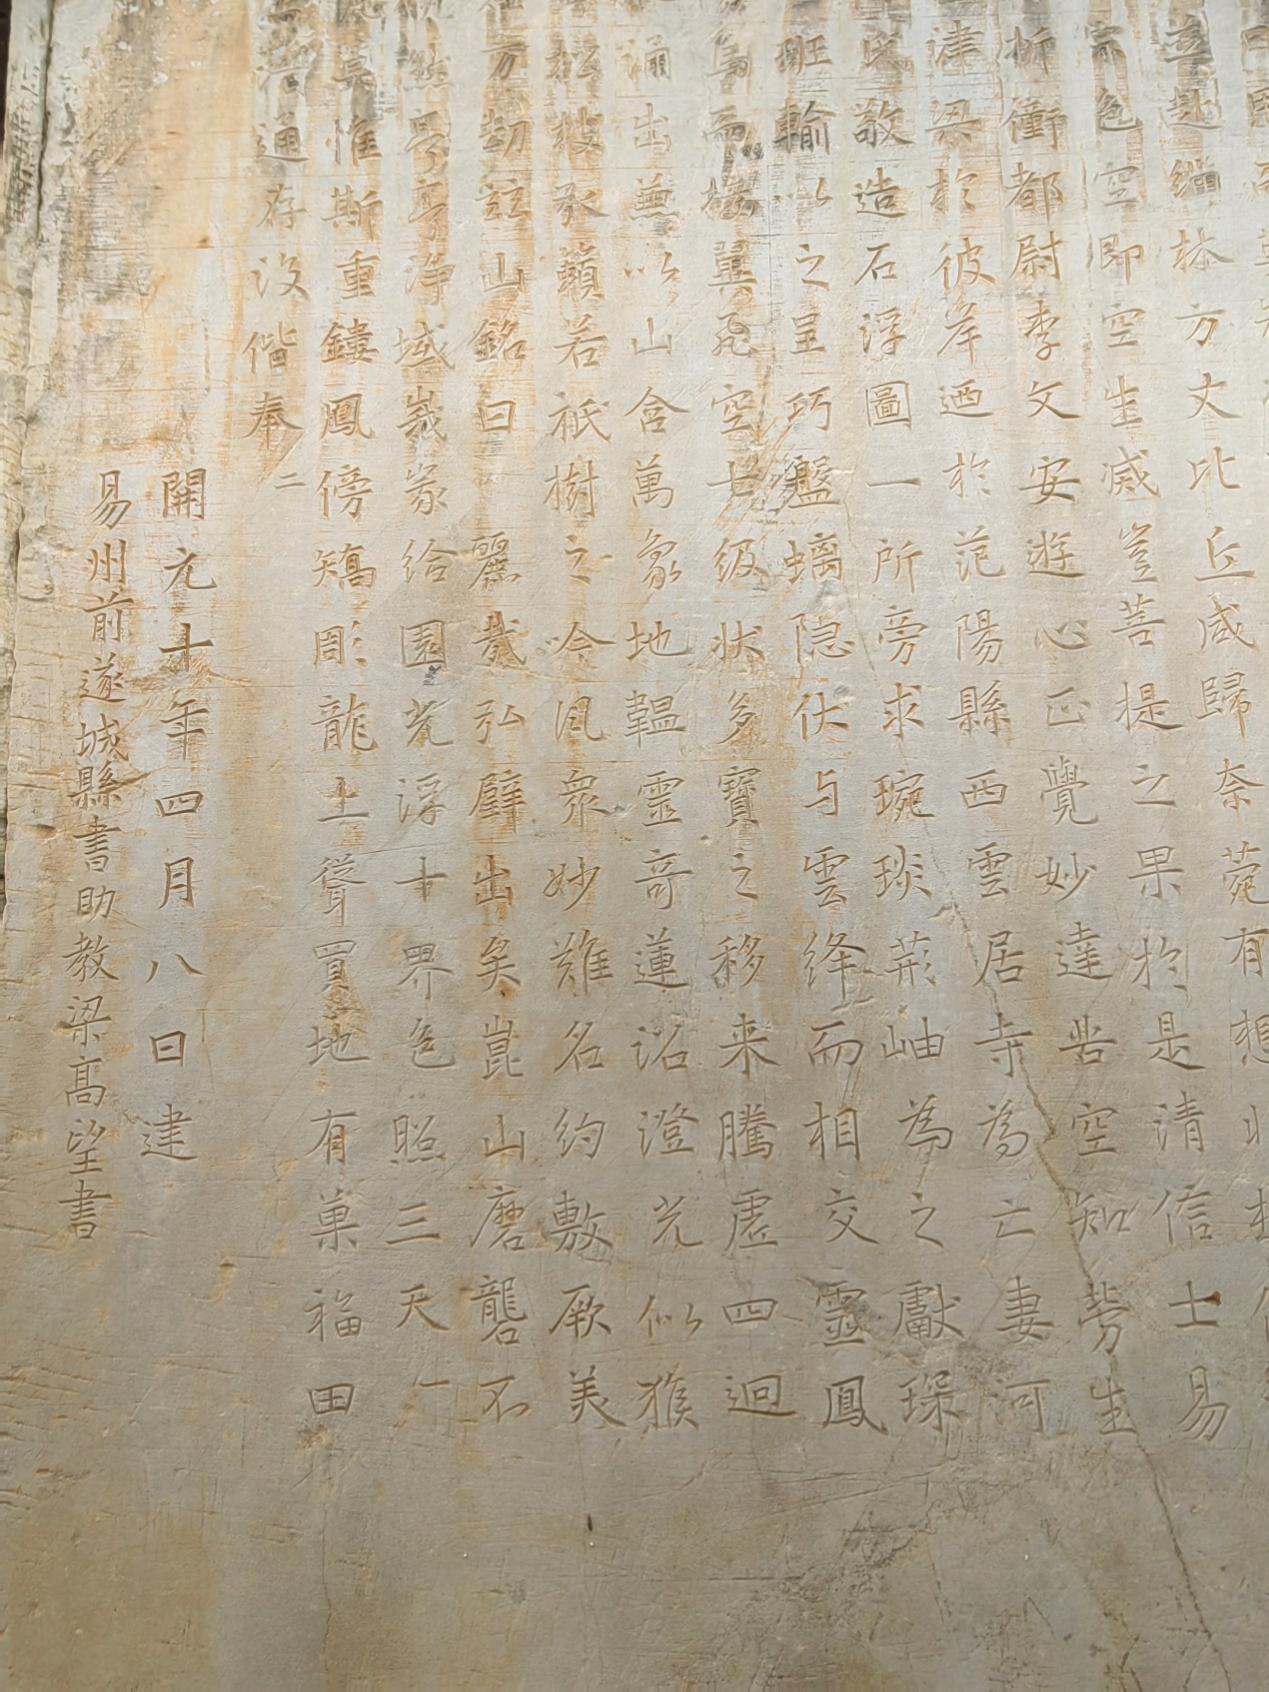 想
並起緇林方丈比丘咸歸奈菀有
色空即空生滅豈菩提之果於是清信士易
折衝都尉李文安遊心正覺妙達苦空知勞生
津梁於彼岸迺於范陽縣西雲居寺為亡妻河
氏敬造石浮圖一所旁求琬琰荊岫為之獻琛
班輸以之呈巧盤螭隐伏与雲絳而相交靈鳳
而矯翼飛空七級状多寶之移来騰虚四迴
涌出蕪以山含萬象地韞靈奇蓮沼澄光似猴
枝承籟若祇樹之吟風衆妙難名約敷厥美
万劫 山銘曰 麗哉弘壁出矣崑山磨礱不
淨域峩峩給園光浮十界色照三天
惟斯重鏤鳳傍矯彫龍土聳買地有菓福田
通存没偕奉 二
開元十年四月八日建
易州前遂城縣書助教梁高望書